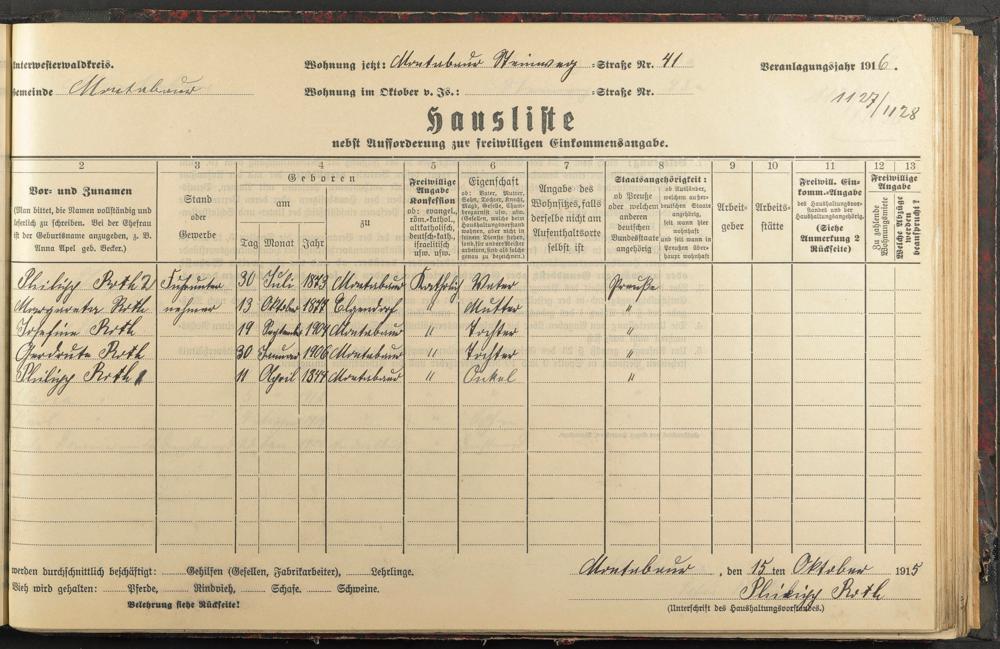 nterwesterwaldkreis. Wohnung jetzt: Montabaur Steinweg -Straße Nr. 41 Veranlagungsjahr 1916.
emeinde Montabaur Wohnung im Oktober v. Js.: -Straße Nr.
1127/1128
Hausliste
nebst Aufforderung zur freiwilligen Einkommensangabe.
2 3 4 5 6 7 8 9 10 11 12 13
Vor- und Zunamen
(Man bittet, die Namen vollständig und
leserlich zu schreiben. Bei der Ehefrau
ist der Geburtsname anzugeben, z. B.
Anna Apel geb. Becker.)
Stand
oder
Gewerbe
Geboren
am
zu
Tag Monat Jahr
Freiwillige
Angabe
Konfession
ob: evangel.,
röm.-kathol.,
altkatholisch,
deutsch-kath.,
israelitisch
usw. usw.
Eigenschaft
ob: Vater, Mutter,
Sohn, Tochter, Knecht,
Magd, Geselle,
Angabe des
Wohnsitzes, falls
derselbe nicht am
Aufenthaltsorte
selbst ist
Staatsangehörigkeit:
ob Preuße
oder welchem
anderen
deutschen
Bundesstaate
angehörig
ob Ausländer,
welchem außer-
deutschen Staate
angehörig,
und seit wann hier
wohnhaft
und seit wann in
Preußen über-
haupt wohnhaft
Arbeit-
geber
Arbeits-
stätte
Freiwill. Ein-
komm.-Angabe
des Haushaltungsvor-
standes und der
Haushaltungsangehörig.
(Siehe
Anmerkung 2
Rückseite)
Freiwillige
Angabe
Zu zahlende
Wohnungsmiete
Welche Abzüge
werden
beansprucht?
Philipp Roth 2 Fuhrunter 30 Juli 1873 Montabaur Katholisch Vater Preuße
Margareta Roth nehmer 13 Oktober 1878 Elgendorf " Mutter "
Josefine Roth 19 September 1904 Montabaur " Tochter "
Gerdrute Roth 30 Januar 1906 Montabaur " Tochter "
Philipp Roth 1 11 April 1847 Montabaur " Onkel "
werden durchschnittlich beschäftigt: Gehilfen (Gesellen, Fabrikarbeiter), Lehrlinge. Montabaur, den 15 ten Oktober 1915
Vieh wird gehalten: Pferde, Rindvieh, Schafe. Schweine. Philipp Roth
Belehrung siehe Rückseite! (Unterschrift des Haushaltungsvorstandes.)